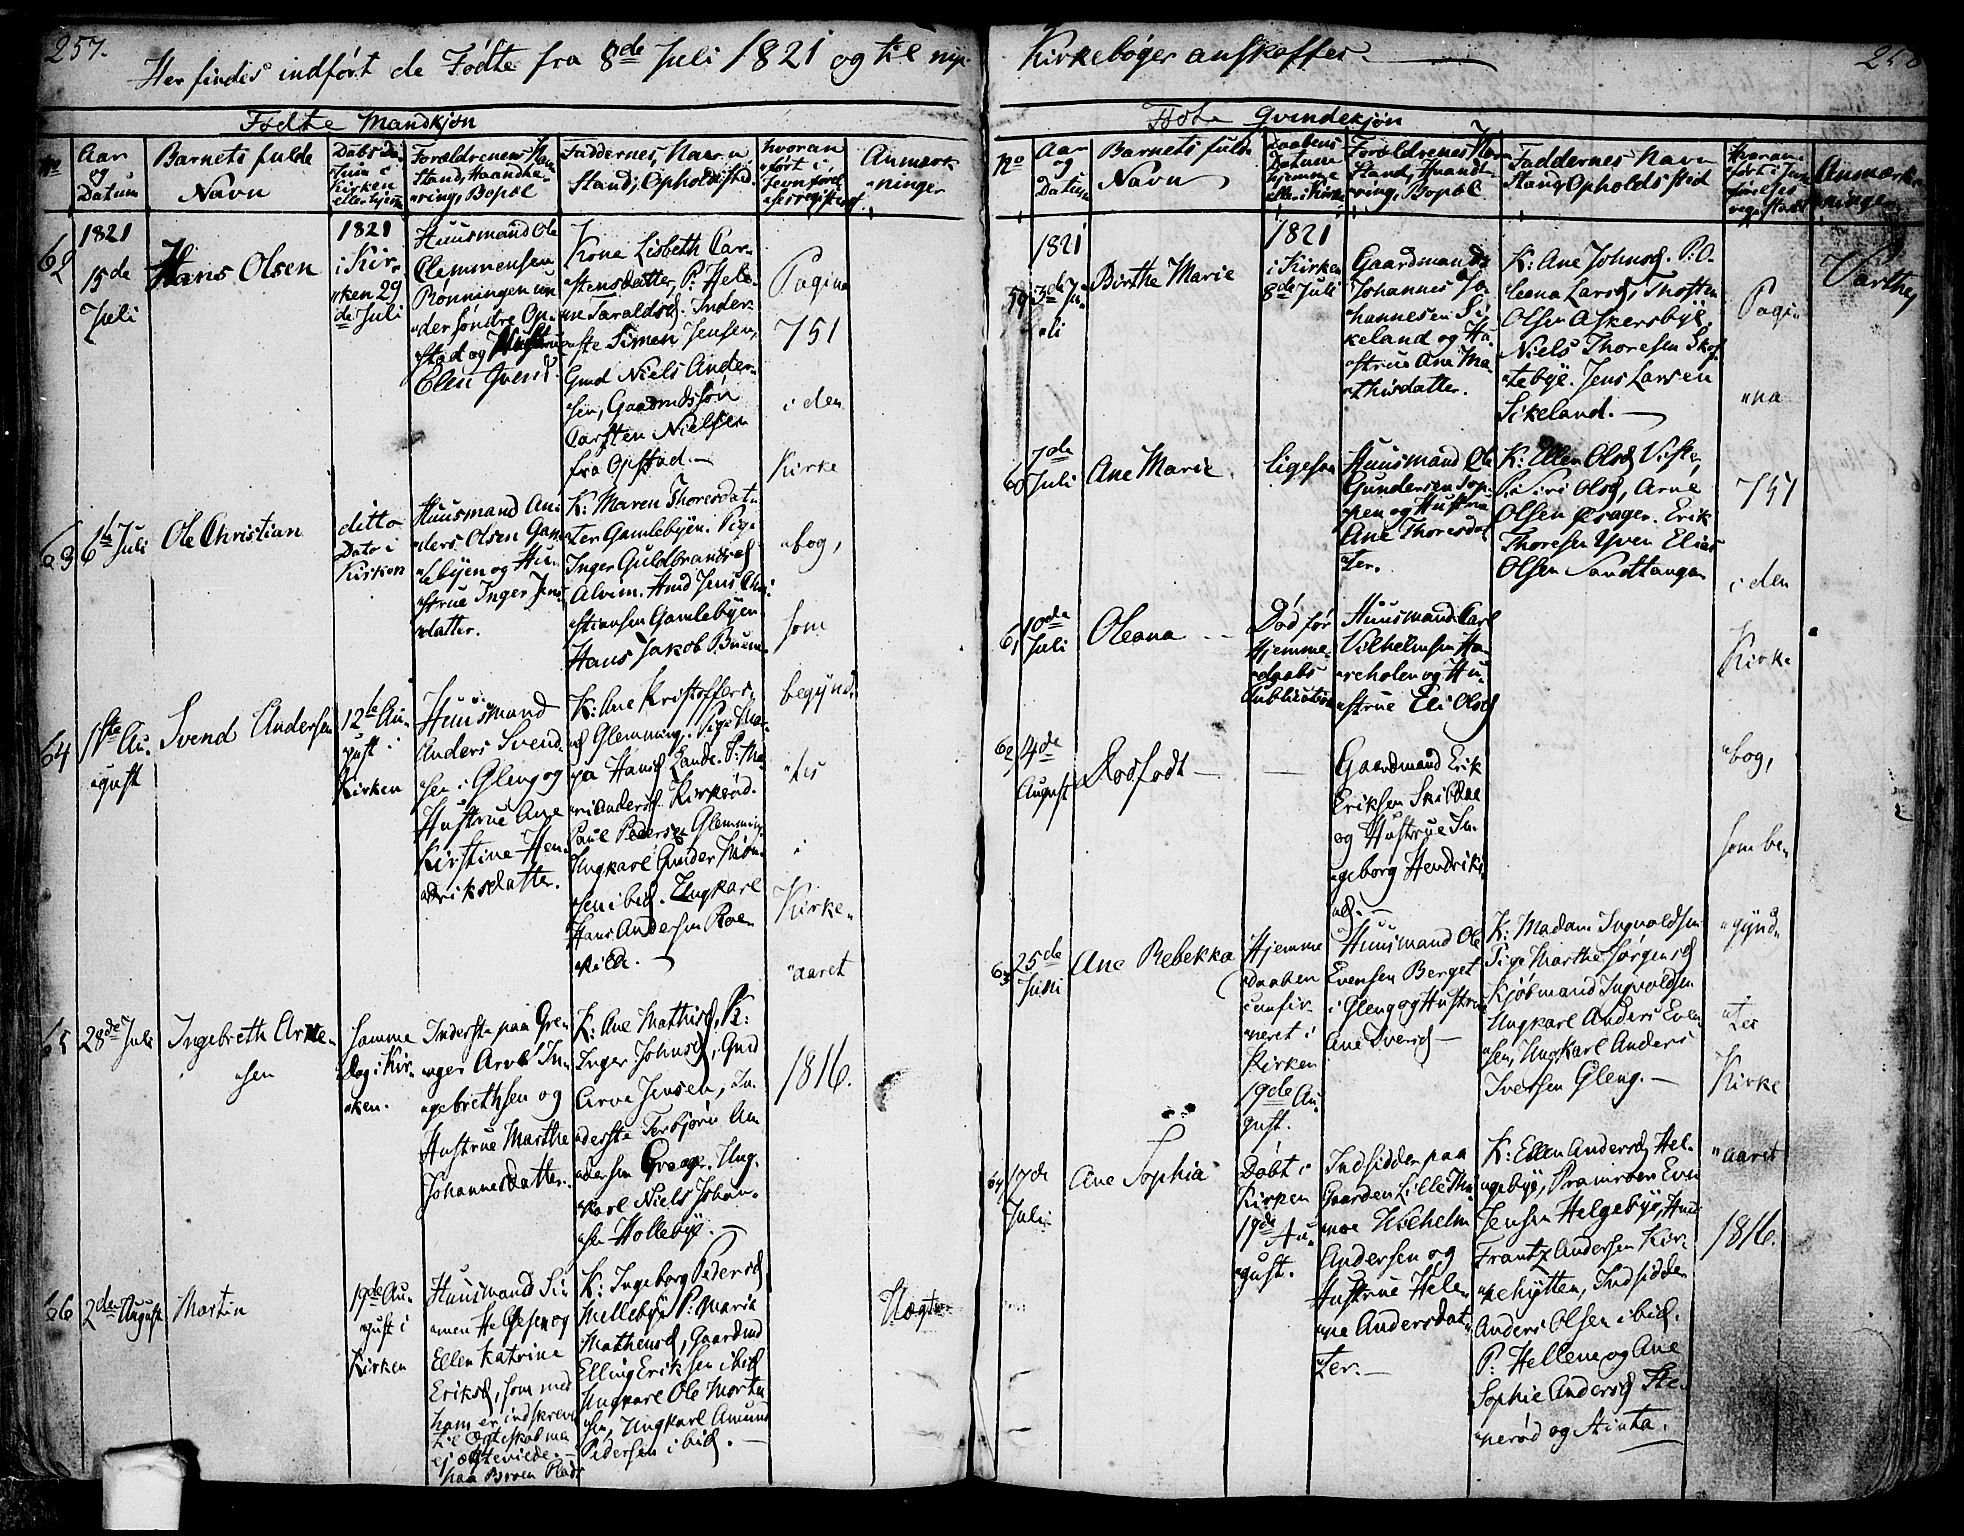 257.
Her findes indført de Fødte fra 8de Juli 1821 og til nye
Fødte Mandkjøn
No
Aar og Datum
Barnets fulde Navn
Dabs Da-
tum i
Kirken
eller hjem
Forældrenes Nam
Stand, Haandte-
ring, Bopæl
Faddernes Navn
Stand, Opholdssted
hvoran
ført i
Jevnførel
sesregisteret
Anmærk
ninger
62
1821
15de
Juli
Hans Olsen
1821
i Kir-
ken 29
de Juli
Huusmand Ole
Clemmensen
Rønningen un
der søndre Op-
stad og Hustrue
Elen Svend.
Kone Lisbeth Car-
stensdatter, P. Hele-
ne Taraldsd. Inder-
ste Simen Jensen,
Gmd Niels Ander-
sen, Gaardmdssøn
Carsten Nielsen
fra Opstad.
Pagina
751
i den
Kirke
bog,
som
begynd-
tes
i
Kirke-
aaret
1816.
63
6te Juli
Ole Christian
ditto
Dato i
Kirken
Huusmand An-
ders Olsen Gam
lebyen og Hu-
strue Inger Jens
datter.
K: Maren Thoresdat-
ter Gamlebyen. Pige
Inger Guldbrandsd
Alvim. Hmd Jens Chri
stiansen Gamlebyen
Hans Jakob Buem
64
1ste Au-
gust
Svend Andersen
12te Au-
gust i
Kirken
Huusmand
Anders Svend-
sen i Gleng og
Hustrue Ane
Kirstine Hen-
driksdatter.
K: Ane Kristoffers-
d Glemming. Pige Ma-
ja Hansd Lande. P: Ma-
ri Andersd. Kirkerød.
Paul Pedersen Glemming
Ungkarl Gunder Mon-
sen ibid. Ungkarl
Hans Andersen Roe-
kild.
65
28de Juli
Ingebreth Arne-
sen
Samme
Dag i Kir-
ken.
Inderste paa Gre-
ager Arve In-
gebrethsen og
Hustrue Marthe
Johannesdatter.
K: Ane Mathisd, P:
Inger Johnsd, Gmd
Arve Jensen, In-
derste Torbjørn An
dersen Greager. Ung-
karl Niels Johan-
sen Hollebye.
66
2den August
Martin
19de Au-
gust i
Kirken
Huusmand Si-
men Helgesen og
Ellen Katrine
Eriksd, som med
ham er indskrevet
til Ægteskab men
ej ægteviede.
paa Broen Plads
K: Ingeborg Pedersd
Mellebye P: Maria
Mathensd, Gaardmd
Elling Eriksen ibid
Ungkarl Ole Morten
sen, Ungkarl Amund
Pedersen ibid.
Uægte
Kirkebøger anskaffes.
258
Fødte Qvindekjøn
No
Aar
og
Datum
Barnets fulde
Navn
Daabens
Datum
hjemme
eller i Kirke
Forældrenes Navn
Stand, Haandte-
ring, Bopæl
Faddernes Navn
Stand, Opholdssted
Hvoran
ført i Jevn
førelses
registeret
Anmærk-
ninger
59
1821
3de Ju-
li
Birthe Marie
1821
i Kirken
8de Juli
Gaardmand
Johannes Jo-
hannesen Si-
keland og Hu-
strue Ane Ma-
thisdatter.
K: Ane Johnsd. P: O-
leana Larsd, Thosten
Olsen Askersbye,
Niels Thoresen Skof-
tebye. Jens Larsen
Sikeland.
Pagi-
na
751
i den
Kirke
bog,
som be-
gynd-
tes
Kirke
aaret
1816.
Varthey
60
7de
Juli
Ane Marie
ligesaa
Huusmand Ole
Gundersen Top-
pen og Hustrue
Ane Thoresdat
ter.
K: Ellen Olsd Viste,
P: Siri Olsd, Arne
Olsen Øsager. Erik
Thoresen Yven Elias
Olsen Sandtangen
61
10de
Juli
Oleana
Død før
Hjemme-
daabs
Publication
Huusmand Carl
Vilhelmsen Ha-
reholen og Hu-
strue Eli Olsd
62
4de
August
Dødfødt
Gaardmand Erik
Eriksen Skibdal
og Hustrue In-
geborg Hendriks
d.
63
25de
Juni
Ane Rebekka
Hjemme
daaben
confir-
meret i
Kirken
19de Au-
gust.
Huusmand Ole
Evensen Berget
i Gleng og Hustrue
Ane Iversd
K: Madam Ingvoldsen
Pige Marthe Jørgensd
Kjøbmand Ingvoldsen
Ungkarl Anders Even-
sen, Ungkarl Anders
Iversen Gleng.
64
17de
Juli
Ane Sophia
Døbt i
Kirken
19de Au-
gust.
Indsidder paa
Gaarden Lille Thu
noe Wilhelm
Andersen og
Hustrue Hele-
ne Andersdat-
ter.
K: Ellen Andersd Hel-
gebye, Pramroer Even
Jensen Helgebye, Huusmd
Frantz Andersen Kir-
kehytten, Indsidder
Anders Olsen ibid.
P: Hellene og Ane
Sophie Andersd Ste-
nerød og Hinta.